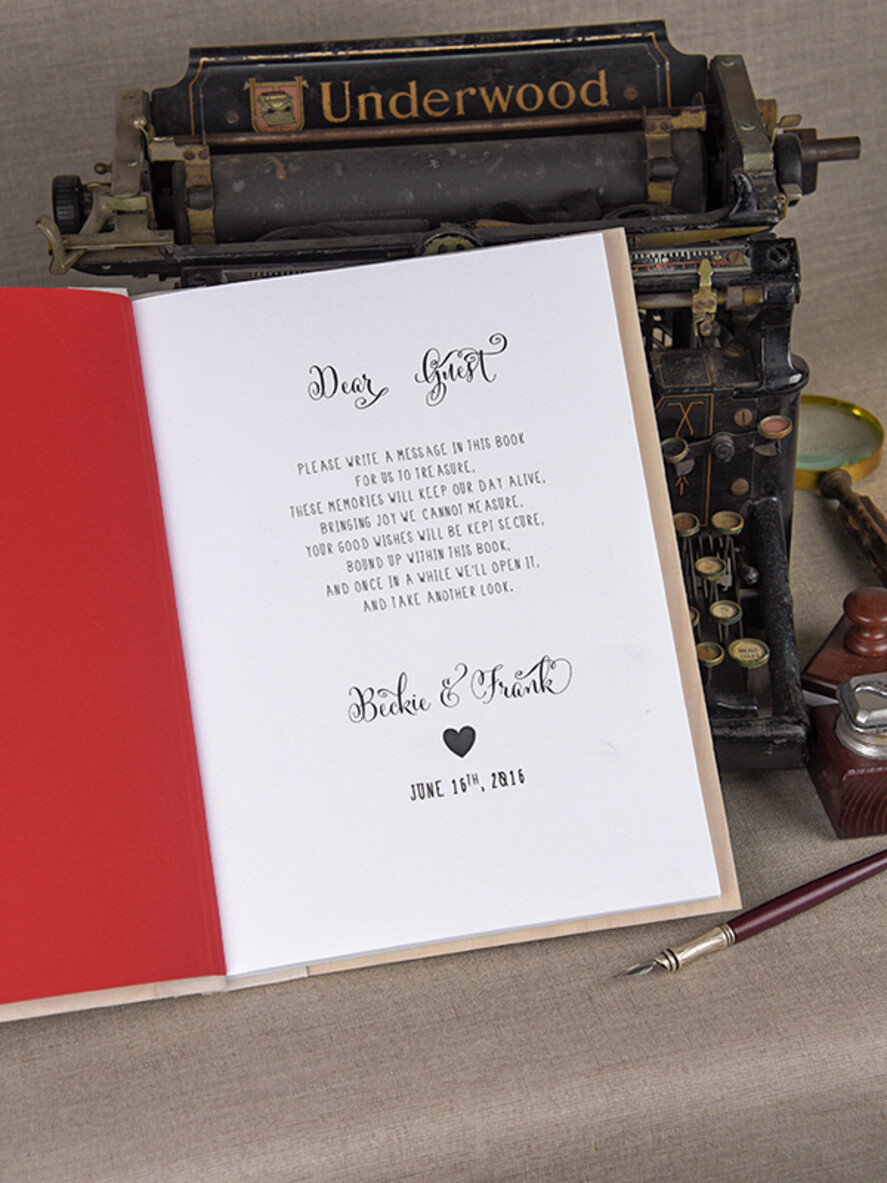 Underwood
Dear Guest
PLEASE WRITE A MESSAGE IN THIS BOOK
FOR US TO TREASURE,
THESE MEMORIES WILL KEEP OUR DAY ALIVE,
BRINGING JOY WE CANNOT MEASURE.
YOUR GOOD WISHES WILL BE KEPT SECURE,
BOUND UP WITHIN THIS BOOK,
AND ONCE IN A WHILE WE'LL OPEN IT,
AND TAKE ANOTHER LOOK.
Beckie & Frank
JUNE 16TH, 2016